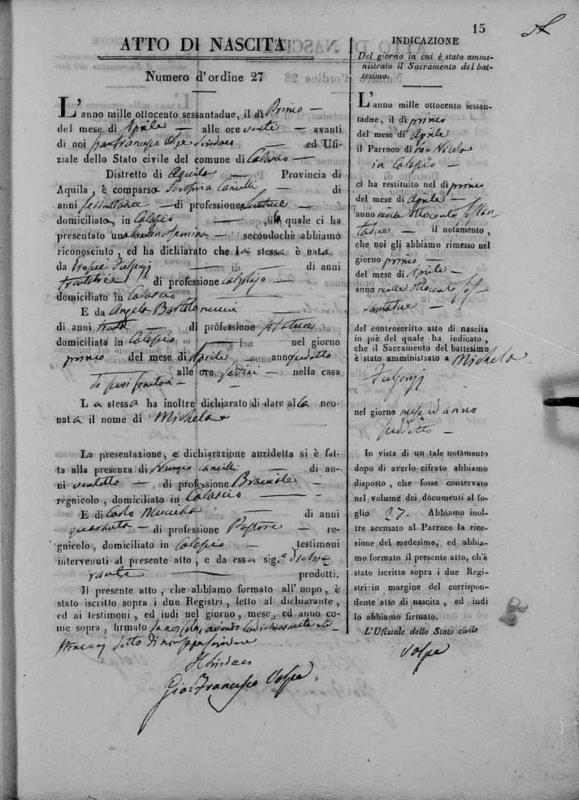 15
ATTO DI NASCITA
Numero d'ordine 27
L'anno mille ottocento sessantadue, il dì Primo
del mese di Aprile alle ore venti avanti
di noi Gianfrancesco Volpe Sindaco ed Ufi-
ziale dello Stato civile del comune di Calascio
Distretto di Aquila Provincia di
Aquila, è comparsa Canelli di
anni sessantadue di professione
domiciliato, in Calascio di quale ci ha
presentato una femina secondochè abbiamo
riconosciuto, ed ha dichiarato che la stessa è nata
da di anni
di professione
domiciliato in Calascio
E da Angela di
di anni di professione
domiciliata in Calascio nel giorno
primo del mese di Aprile anno suddetto
alle ore sedici nella casa
La stessa ha inoltre dichiarato di dare alla neo-
nata il nome di Michela
La presentazione, e dichiarazione anzidetta si è fat-
ta alla presenza di Canelli di an-
ni ventotto di professione Bracciale
regnicolo, domiciliato in Calascio
E di Carlo di anni
quaranta di professione Pastore re-
gnicolo, domiciliato in Calascio testimoni
intervenuti al presente atto, e da essa sig.a Dichia
rante prodotti.
Il presente atto, che abbiamo formato all'uopo, è
stato iscritto sopra i due Registri, letto al dichiarante,
ed ai testimoni, ed indi nel giorno, mese, ed anno co-
me sopra, firmato avendo la dichiarante ed
detto di non saper scrivere
Il Sindaco
Gio: Francesco Volpe
INDICAZIONE
Del giorno in cui è stato ammi-
nistrato il Sacramento del bat-
tesimo.
L'anno mille ottocento sessan-
tadue, il dì primo
del mese di Aprile
il Parroco di San Nicola
in Calascio
ci ha restituito nel dì primo
del mese di Aprile
anno mille ottocento sessan
tadue il notamento,
che noi gli abbiamo rimesso nel
giorno primo
del mese di Aprile
anno mille ottocento ses
santadue
del controscritto atto di nascita
in piè del quale ha indicato,
che il Sacramento del battesimo
è stato amministrato a Michela
nel giorno mese ed anno
suddetto
In vista di un tale notamento
dopo di averlo cifrato abbiamo
disposto, che fosse conservato
nel volume dei documenti al fo-
glio 27. Abbiamo inol-
tre accusato al Parroco la rice-
zione del medesimo, ed abbia-
mo formato il presente atto, ch'è
stato iscritto sopra i due Regi-
stri in margine del corrispon-
dente atto di nascita, ed indi
lo abbiamo firmato.
L'Ufiziale dello Stato civile
Volpe